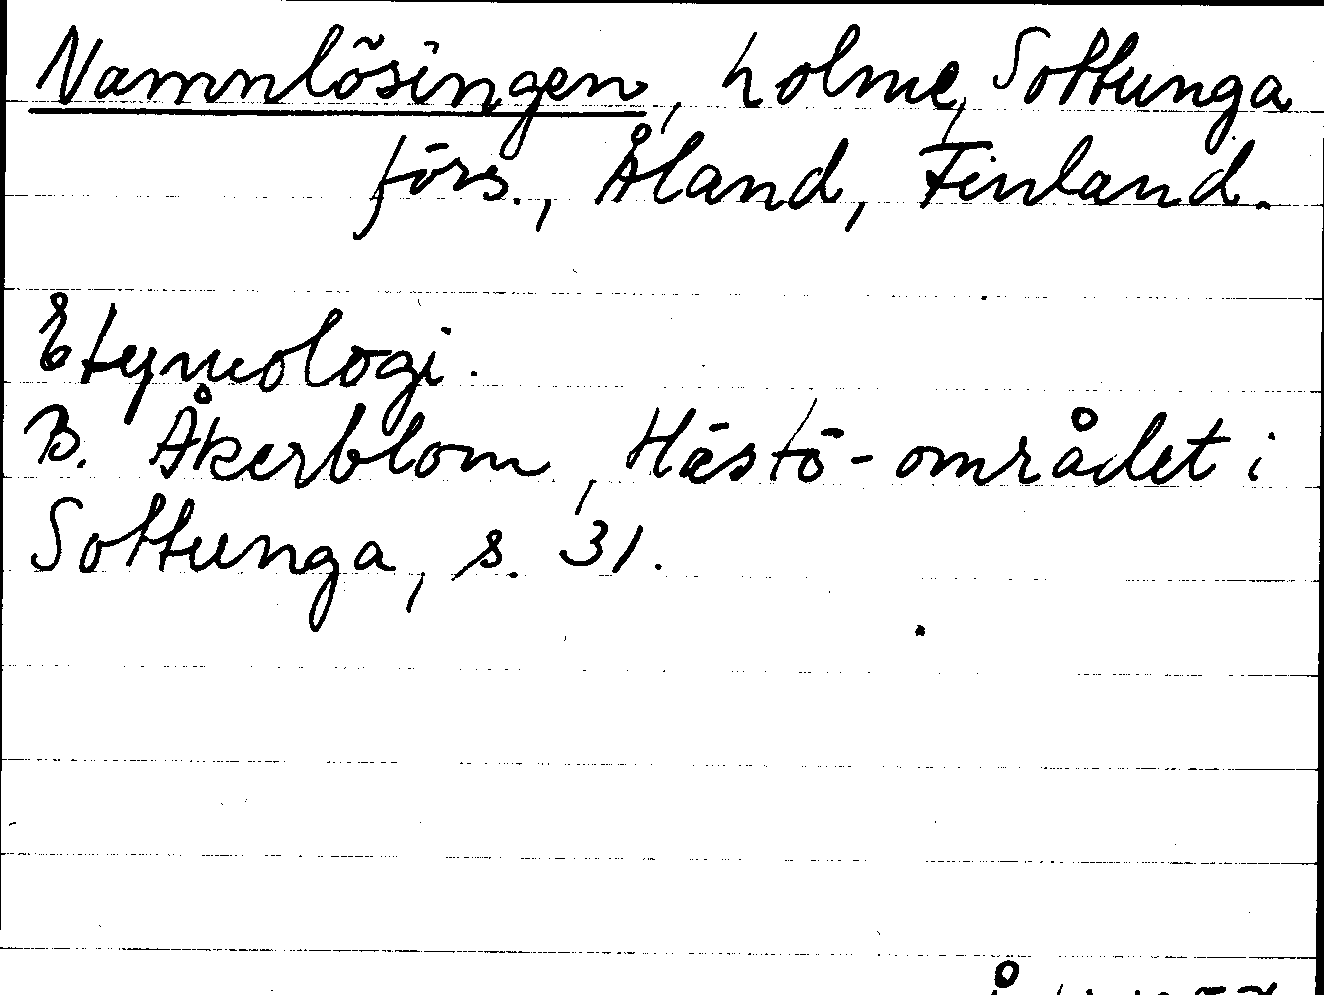 Namnlösingen, holme, Sottunga
förs., Åland, Finland.
Etymologi.
B. Åkerblom, Hästö-området i
Sottunga, s. 31.